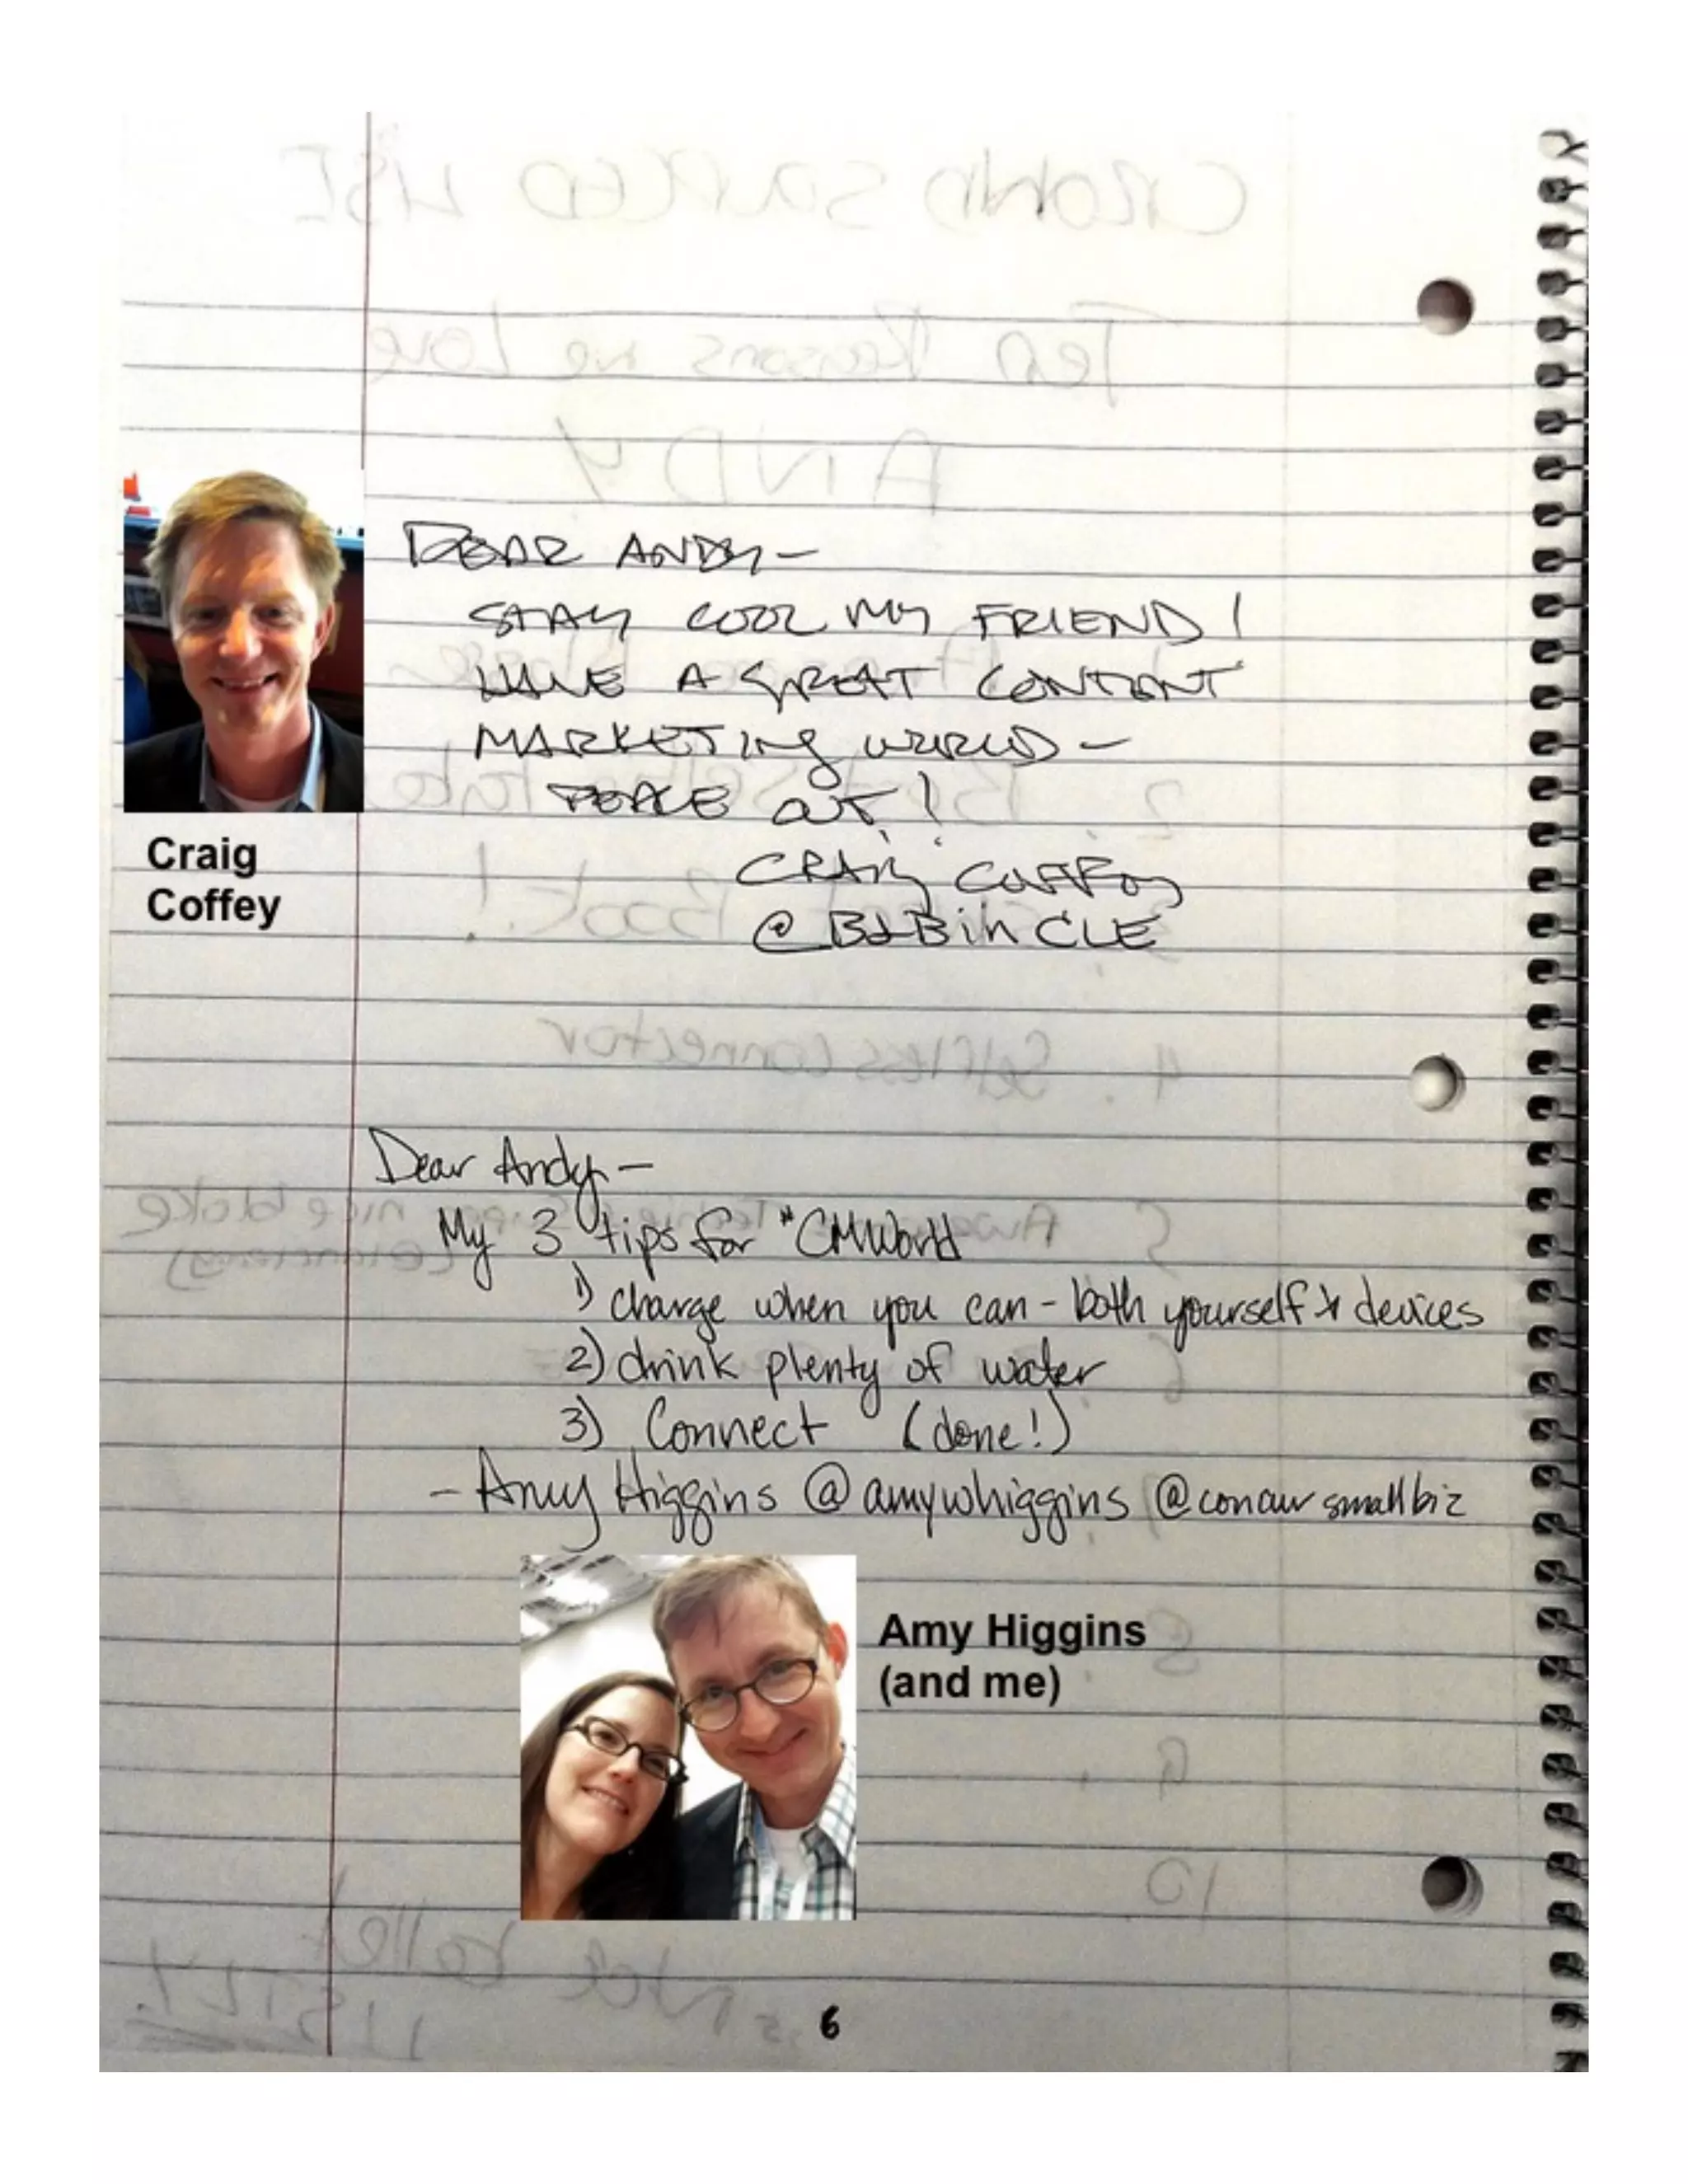 DEAR ANDY-
STAY COOL MY FRIEND!
HAVE A GREAT CONTENT
MARKETING WORLD-
PEACE OUT!
CRAIG COFFEY
@B2BinCLE
Craig
Coffey
Dear Andy-
My 3 tips for #CMWorld
1) charge when you can - both yourself & devices
2) drink plenty of water
3) Connect (done!)
- Amy Higgins @amywhiggins @concursmallbiz
Amy Higgins
(and me)
6